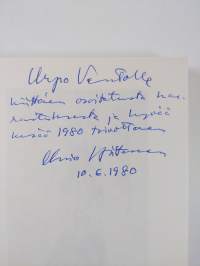 Urpo
kiittäen osoitetusta har-
rastuksesta ja hyvää
kesää 1980 toivottaen
10.6.1980